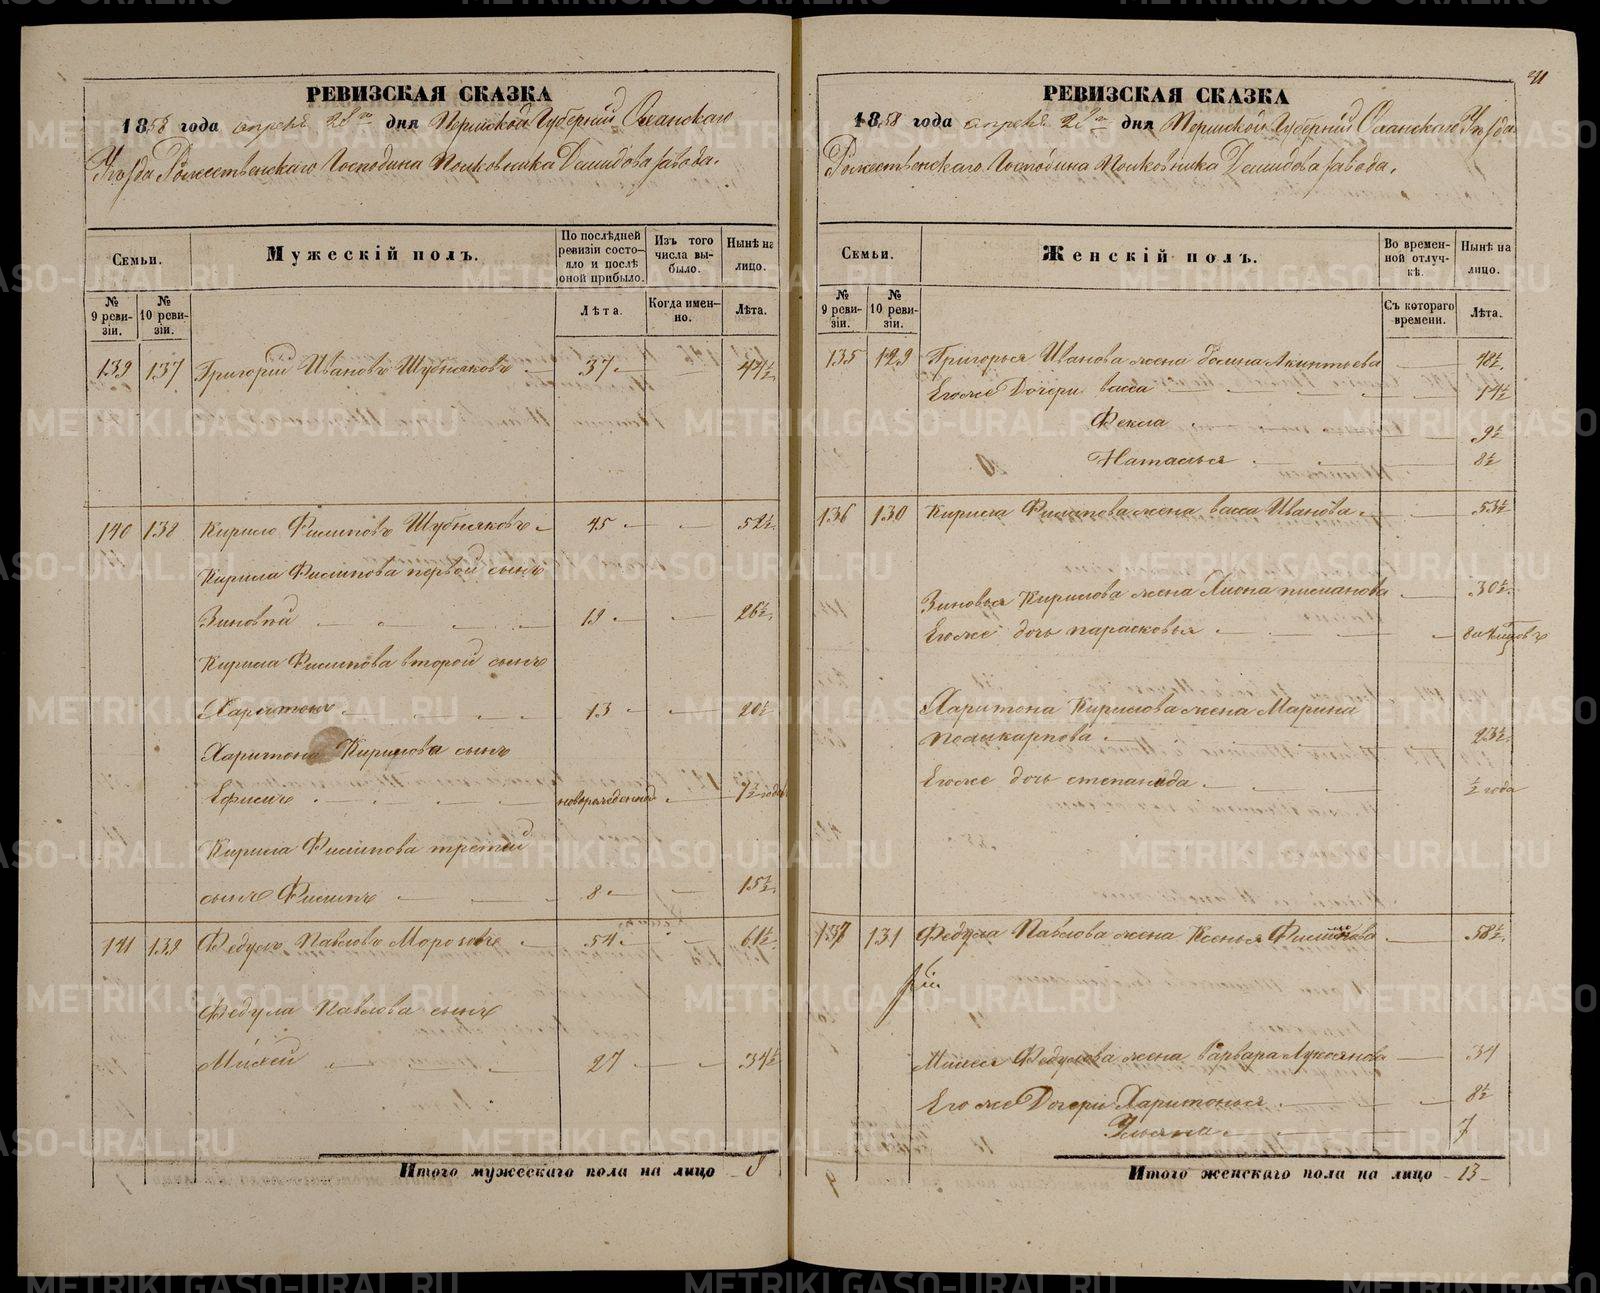 РЕВИЗСКАЯ СКАЗКА
1858 года апреля дня Пермской Губернии Оханскаго
Уезда Рожественскаго Господина Полковника Демидова завода.
Семьи.
Мужескій полъ.
По послѣдней ревизіи состояло и послѣ оной прибыло.
Изъ того числа выбыло.
Нынѣ на лицо.
№ 9 ревизіи.
№ 10 ревизіи.
Лѣта.
Когда именно.
Лѣта.
139 137 Григорій Ивановъ Шубняковъ 37 44½
140 138 Кирило Филиповъ Шубняковъ 45 52½
Кирила Филипова первой сынъ
Зиновей 19 26½
Кирила Филипова второй сынъ
Харитонъ 13 20½
Харитона Кирилова сынъ
новорожденный ½ года
Кирила Филипова третей
сынъ Филипъ 8 15½
141 139 Федулъ Павловъ Морозовъ 54 61½
Федула Павлова сынъ
Михей 27 34½
Итого мужескаго пола на лицо 8
41
РЕВИЗСКАЯ СКАЗКА
1858 года апреля дня Пермской Губерніи Оханскаго Уезда
Рожественскаго Господина Полковника Демидова завода.
Семьи.
Женскій полъ.
Во временной отлучкѣ.
Нынѣ на лицо.
№ 9 ревизіи.
№ 10 ревизіи.
Съ котораго времени.
Лѣта.
135 129 Григорья Иванова жена 48½
Егоже Дочери васса 14½
Фекла 9½
Наталья 8½
136 130 Кирила Филипова жена васса Иванова 53½
Зиновья Кирилова жена 30½
Егоже дочь парасковья
Харитона Кирилова жена Марина
поликарпова 23½
Егоже дочь степанида ½ года
137 131 Федула Павлова жена Ксенья Филипова 58½
Михея Федулова жена варвара Лукоянова 34
Егоже Дочери Харитонья 8½
Ульяна 7
Итого женскаго пола на лицо 13
METRIKI.GASO-URAL.RU